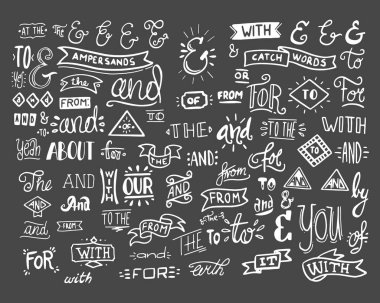 AT THE & & & &
& WITH & & &
AMPERSANDS
TO & the and
& CATCH WORDS
OR
FROM
OF FROM FOR TO For
AND & TO and
THE and TO THE WITH
yeah ABOUT for
THE AND from for AND
The AND WITH OUR AND
FROM TO AND by
and FROM TO THE
FROM THE TO to & YOU of
FOR WITH AND
with FOR with IT WITH